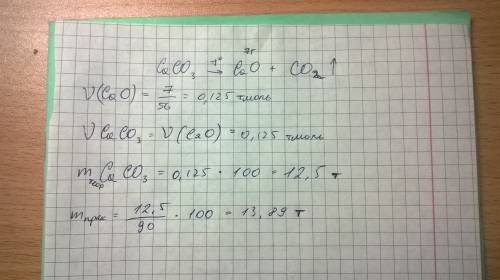 7т
CaCO₃ →t° CaO + CO₂ ↑
ν(CaO) = 7/56 = 0,125 тмоль
ν CaCO₃ = ν(CaO) = 0,125 тмоль
m теор CaCO₃ = 0,125 · 100 = 12,5 т
m прак = 12,5/90 · 100 = 13,89 т